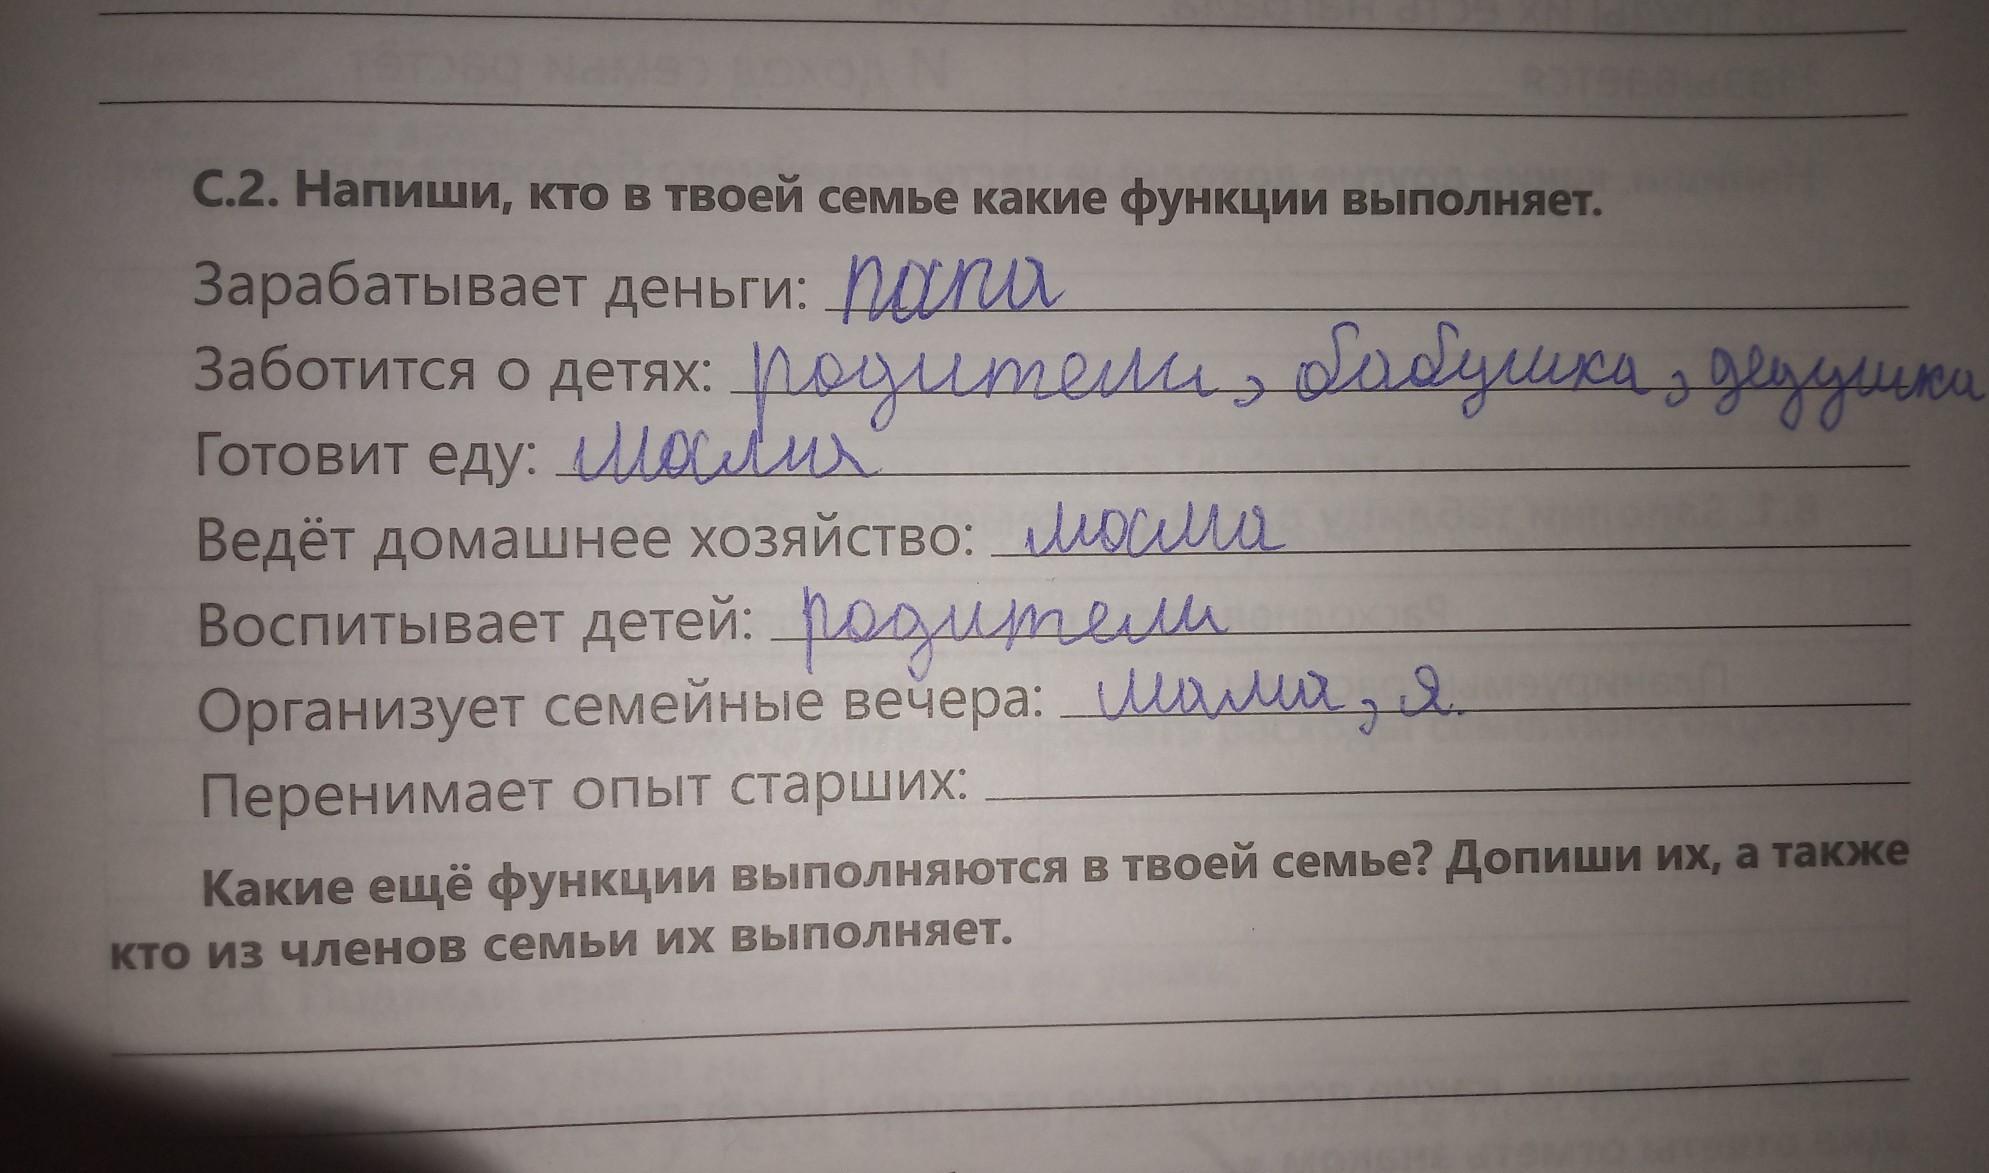 С.2. Напиши, кто в твоей семье какие функции выполняет.
Зарабатывает деньги: папа
Заботится о детях: родители, бабушка, дедушка
Готовит еду: мама
Ведёт домашнее хозяйство: мама
Воспитывает детей: родители
Организует семейные вечера: мама, я.
Перенимает опыт старших:
Какие ещё функции выполняются в твоей семье? Допиши их, а также
кто из членов семьи их выполняет.